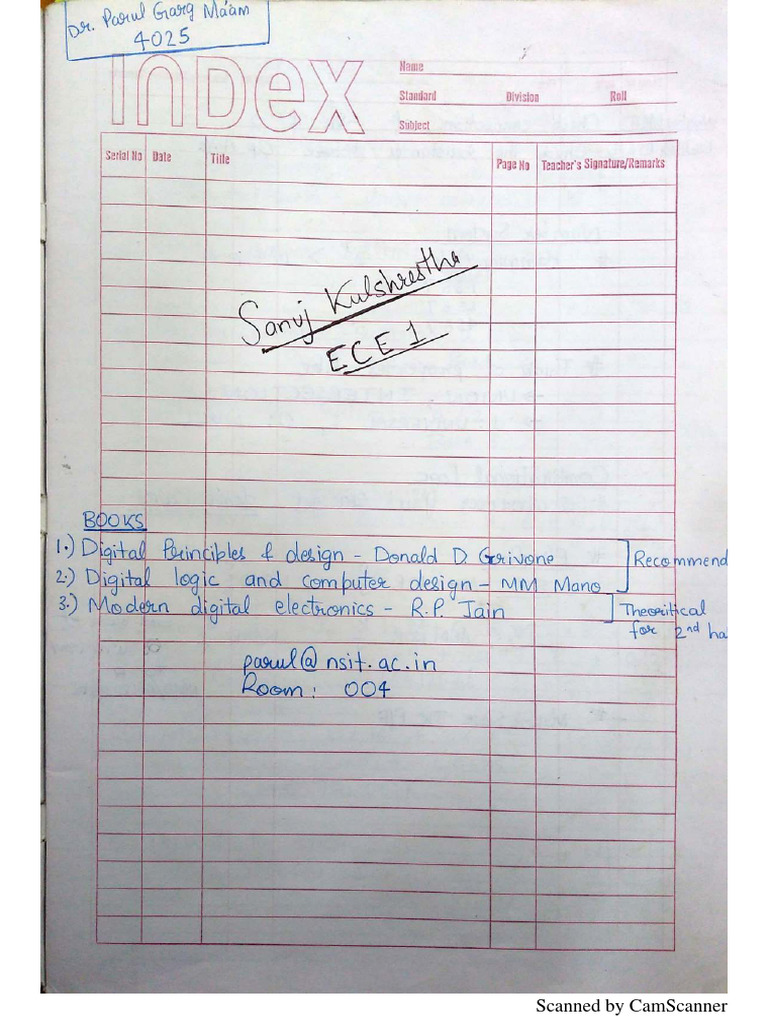 Dr. Parul Garg Ma'am
4025
INDEX
Name
Standard Division Roll
Subject
Serial No Date Title Page No Teacher's Signature/Remarks
Sanuj Kulshrestha
ECE 1
BOOKS
1.) Digital Principles & design - Donald D. Grivone ] Recommend
2.) Digital logic and computer design - MM Mano
3.) Modern digital electronics - R.P. Jain ] Theoritical
for 2nd ha
parul@nsit.ac.in
Room: 004
Scanned by CamScanner